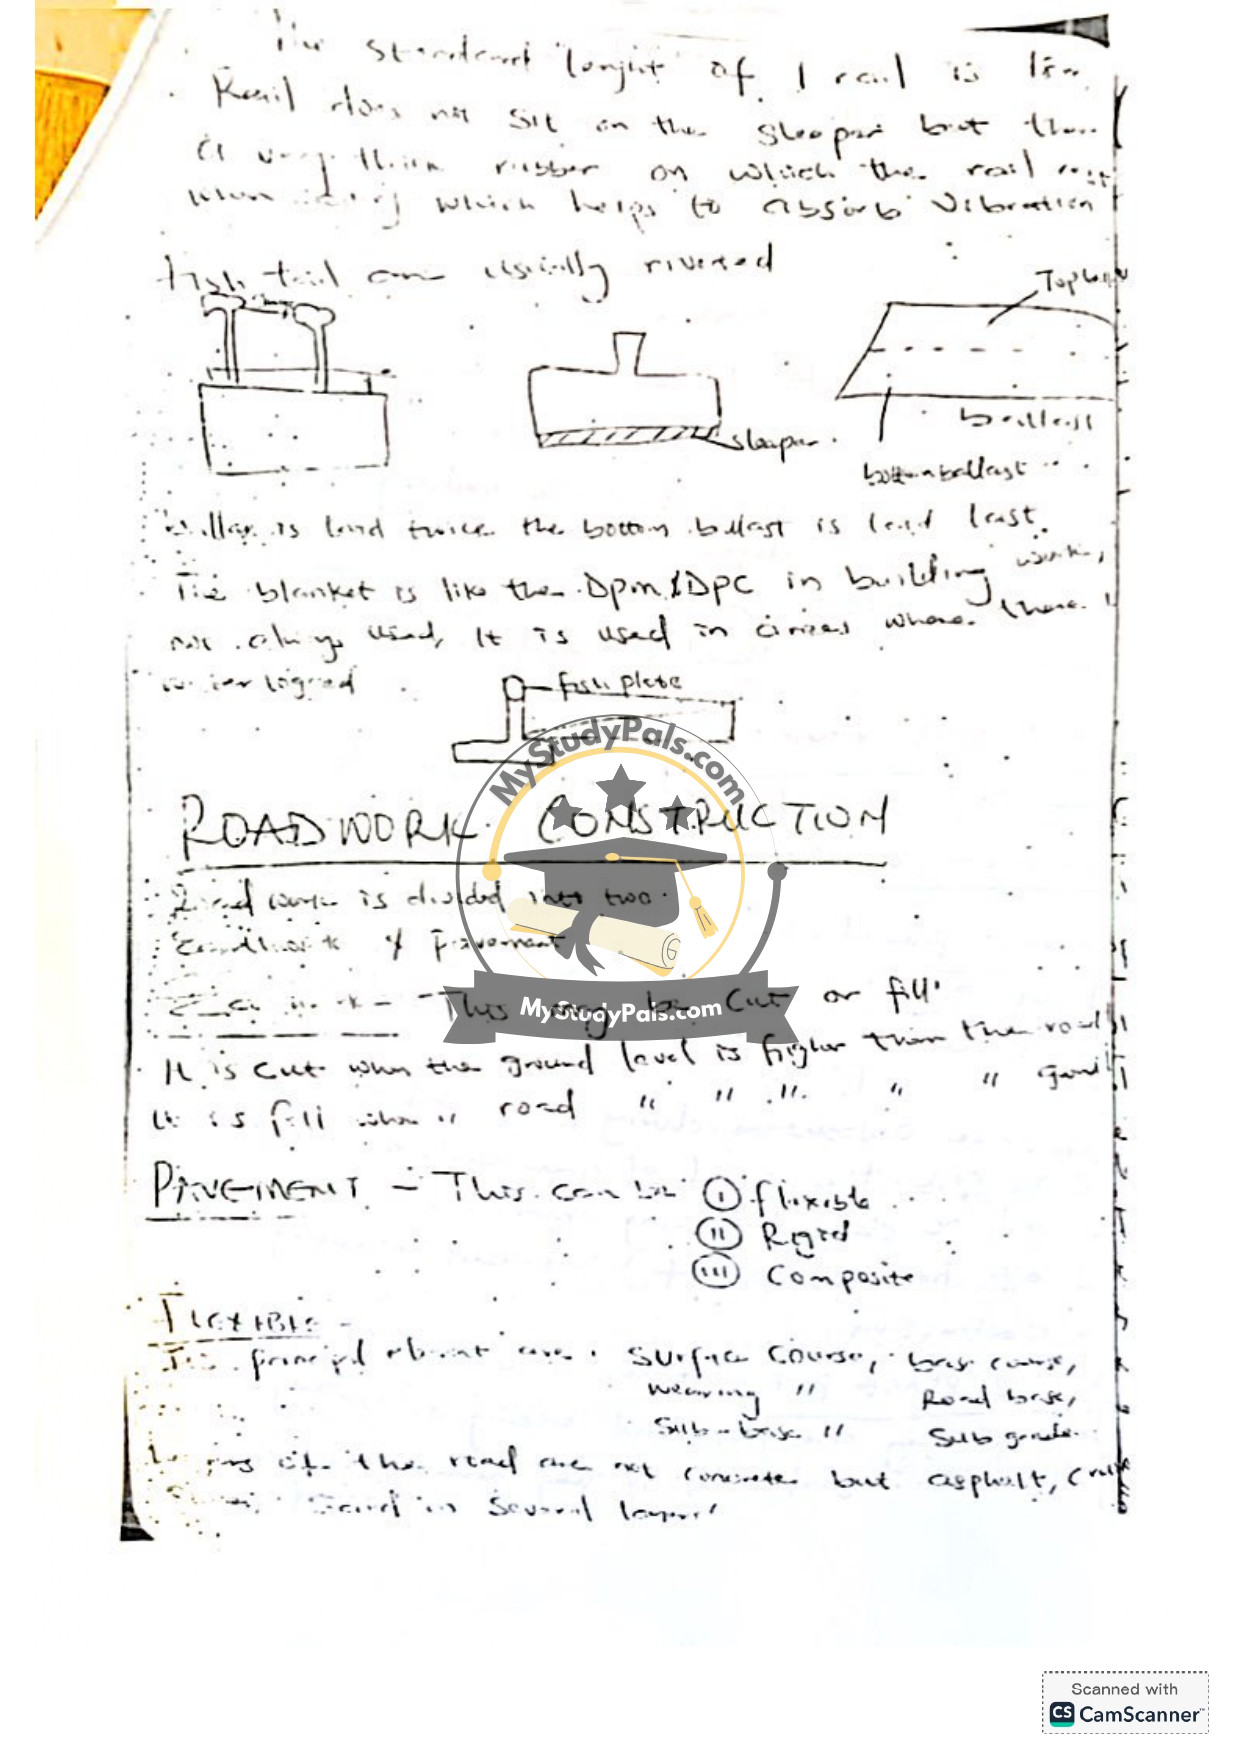 The standard lenght of 1 rail is
Rail does not sit on the sleeper but there
a very thick rubber on which the rail rest
which helps to absorb vibration
fish tail are usually riveted
Top ballast
sleeper.
ballast
bottom ballast
is laid twice the bottom ballast is laid last.
The blanket is like the DPM & DPC in building works,
not always used, It is used in areas where there
water logged
fish plate
MyStudyPals.com
ROADWORK CONSTRUCTION
Road work is divided into two.
Earthwork & pavement
MyStudyPals.com
Earthwork - This may be cut or fill.
It is cut when the ground level is higher than the road
It is fill when " road " " " " " ground
PAVEMENT - This can be (i) flexible
(ii) Rigid
(iii) Composite
FLEXIBLE -
The principal element are . Surface Course, base course,
Wearing " Road base,
Sub-base " Sub grade.
of the road are not concrete but asphalt,
Sand in several layers
Scanned with
CS CamScanner